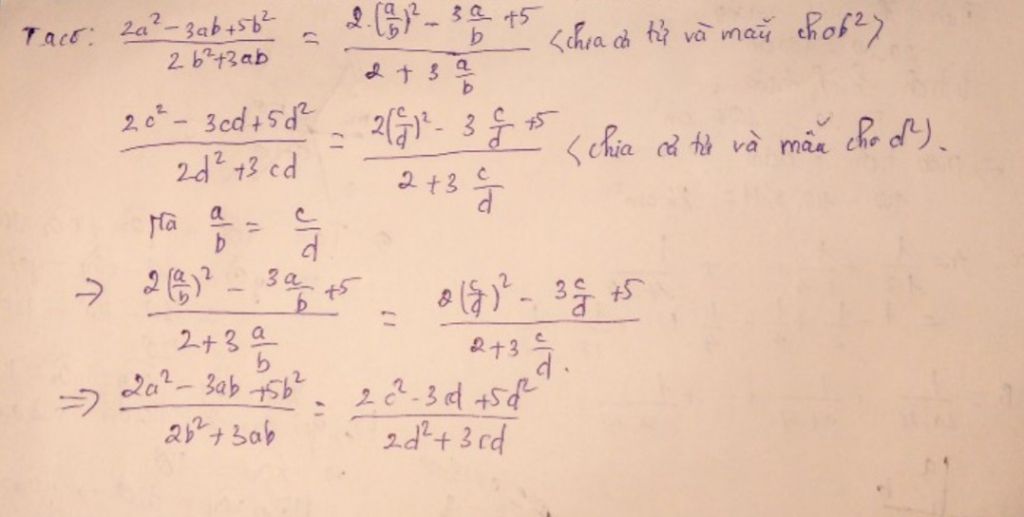 Ta có: \frac{2a^2 - 3ab + 5b^2}{2b^2 + 3ab} = \frac{2.(\frac{a}{b})^2 - \frac{3a}{b} + 5}{2 + 3\frac{a}{b}} (chia cả tử và mẫu cho b^2)
\frac{2c^2 - 3cd + 5d^2}{2d^2 + 3cd} = \frac{2(\frac{c}{d})^2 - 3\frac{c}{d} + 5}{2 + 3\frac{c}{d}} (chia cả tử và mẫu cho d^2).
Mà \frac{a}{b} = \frac{c}{d}
⇒ \frac{2(\frac{a}{b})^2 - \frac{3a}{b} + 5}{2 + 3\frac{a}{b}} = \frac{2(\frac{c}{d})^2 - 3\frac{c}{d} + 5}{2 + 3\frac{c}{d}}.
⇒ \frac{2a^2 - 3ab + 5b^2}{2b^2 + 3ab} = \frac{2c^2 - 3cd + 5d^2}{2d^2 + 3cd}